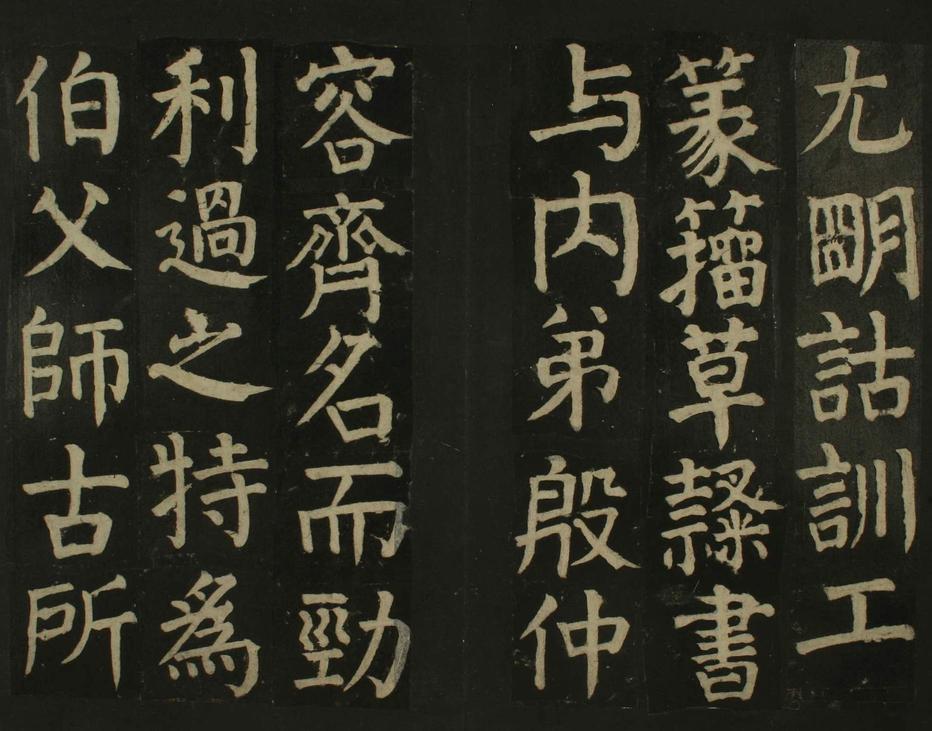 尤明詁訓工
篆籀草隷書
与内弟殷仲
容齊名而勁
利過之特為
伯父師古所